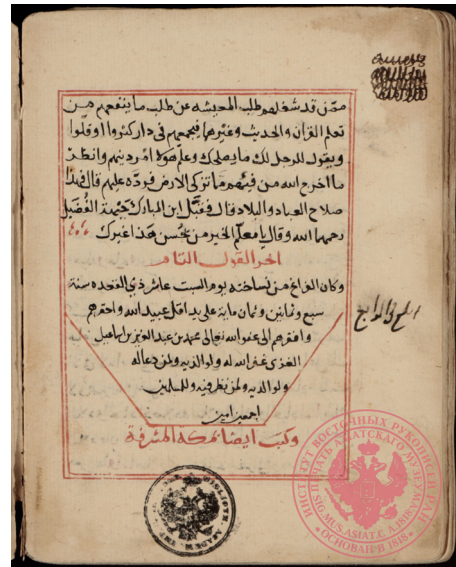 ممن قد شغلهم طلب المعيشه عن طلب ما ينفعهم من
تعلم القرآن والحديث وغيرهما فيجمعهم في دار كثروا او قلوا
ويقول للرجل لك ما يصلحك وعلم هؤلاء امر دينهم وانظر
ما اخرج الله من فيئهم مما تزكي الارض فرده عليهم قال فهذا
صلاح العباد والبلاد قال فقبل ابن المبارك جبهة الفضيل
رحمهما الله وقال يا معلم الخير من يحسن هذا غيرك
اخر القول التام
وكان الفراغ من نساخته يوم السبت عاشر ذي القعده سنة
سبع وثمانين وثمان ماية على يد اقل عبيد الله واحقرهم
وافقرهم الى عفو الله تعالى محمد بن عبد العزيز بن اسماعيل
الغزي غفر الله له ولوالديه ولمن دعا له
ولوالديه ولمن نظر فيه وللمسلمين
اجمعين امين
وكتب ايضا بمكه المشرفة
ИНСТИТУТ ВОСТОЧНЫХ РУКОПИСЕЙ РАН
ПЕЧАТЬ АЗИАТСКАГО МУЗЕЯ
SIG. MUS. ASIAT. C. A. 1818
ОСНОВАН В 1818 Г.